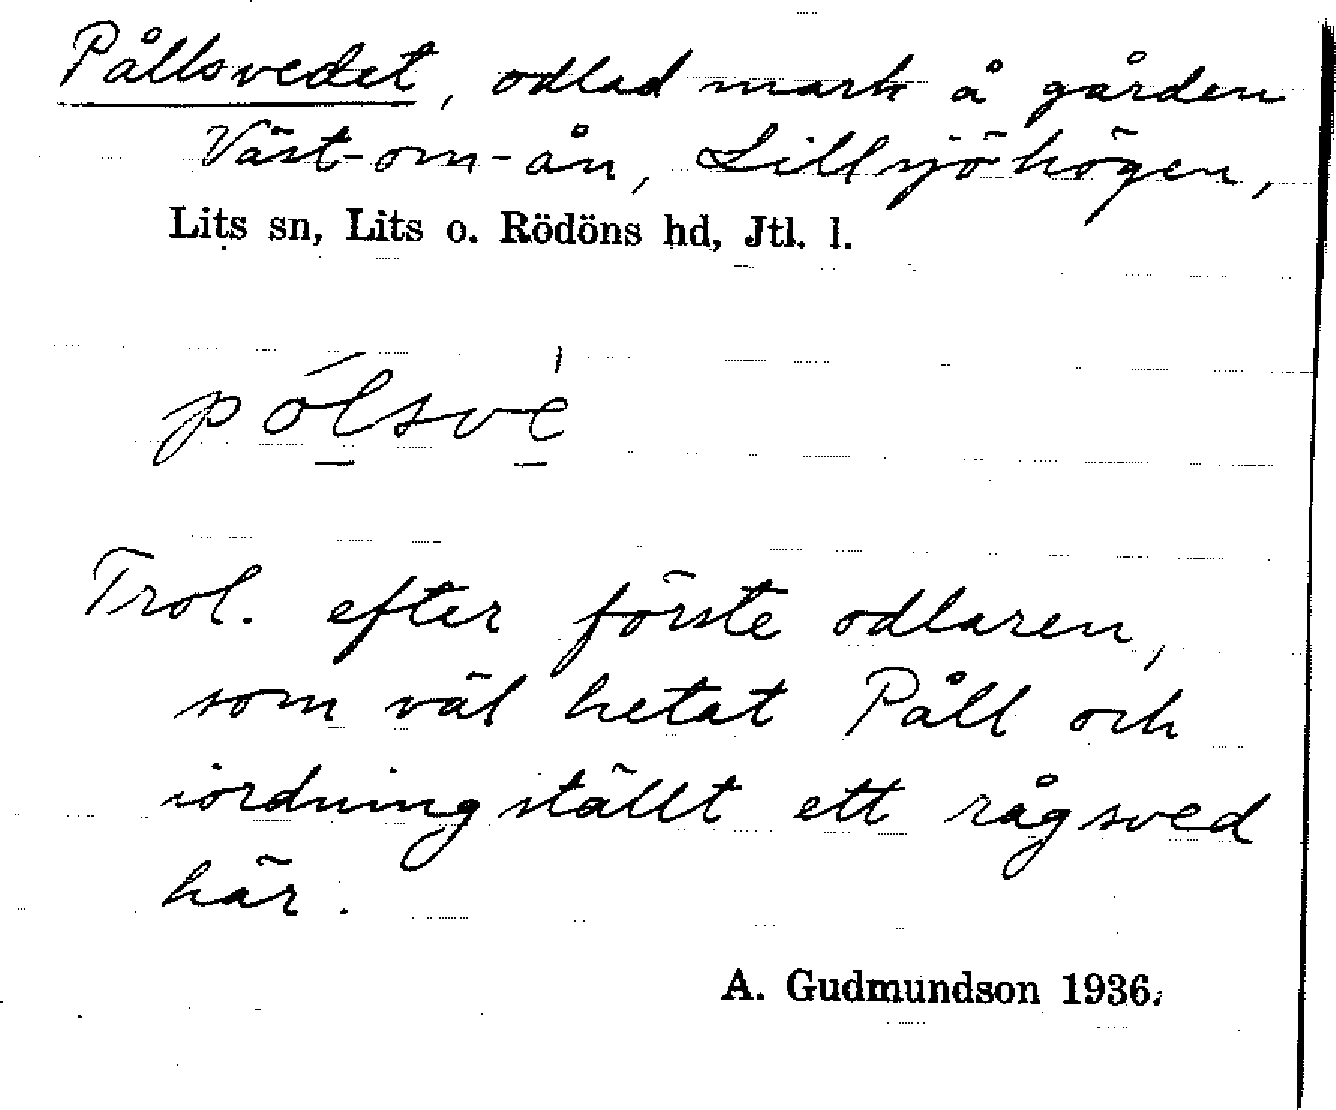 Pållsvedet, odlad mark å gården
Väst-om-ån, Lillsjöhögen,
Lits sn, Lits o. Rödöns hd, Jtl. l.
pólsve̍
Trol. efter förste odlaren,
som väl hetat Påll och
iordningställt ett rågsved
här.
A. Gudmundson 1936.